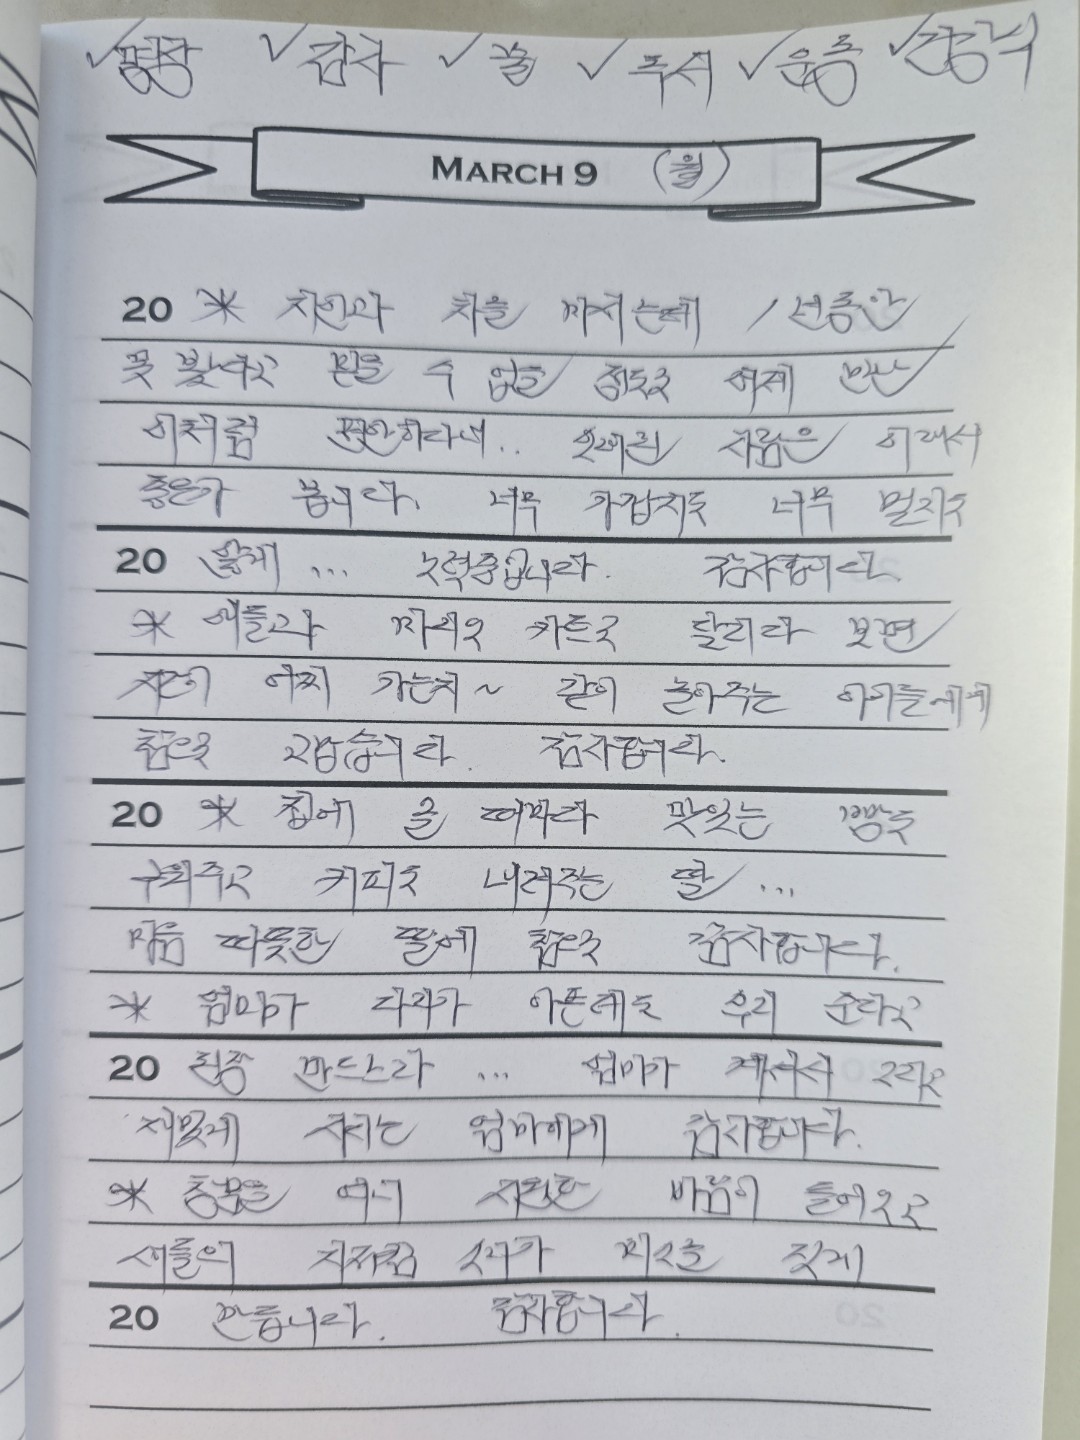 ✓명상 ✓감사 ✓물 ✓독서 ✓운동 ✓간헐식
MARCH 9 (월)
20 * 지인과 차를 마시는데 1년동안
못 봤다고 믿을 수 없을 정도로 어제 만난
이처럼 편안하다니.. 오래된 사람은 이래서
좋은가 봅니다. 너무 가깝지도 너무 멀지도
20 않게 ... 노력중입니다. 감사합니다.
* 애들과 마리오 카트로 달리다 보면
시간이 어찌 가는지~ 같이 놀아주는 아이들에게
참으로 고맙습니다. 감사합니다.
20 * 집에 올 때마다 맛있는 빵도
구워주고 커피도 내려주는 딸 ...
마음 따뜻한 딸에 참으로 감사합니다.
* 엄마가 다리가 아픈데도 우리 준다고
20 된장 만드느라 ... 엄마가 계셔서 그리고
재밌게 사시는 엄마에게 감사합니다.
* 창문을 여니 시원한 바람이 들어오고
새들의 지저귐 소리가 미소를 짓게
20 만듭니다. 감사합니다.